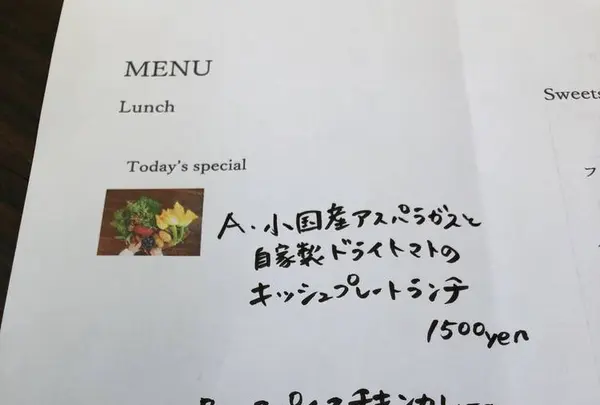 MENU
Lunch
Sweets
Today's special
フ
A. 小国産アスパラガスと
自家製ドライトマトの
キッシュプレートランチ
1500yen